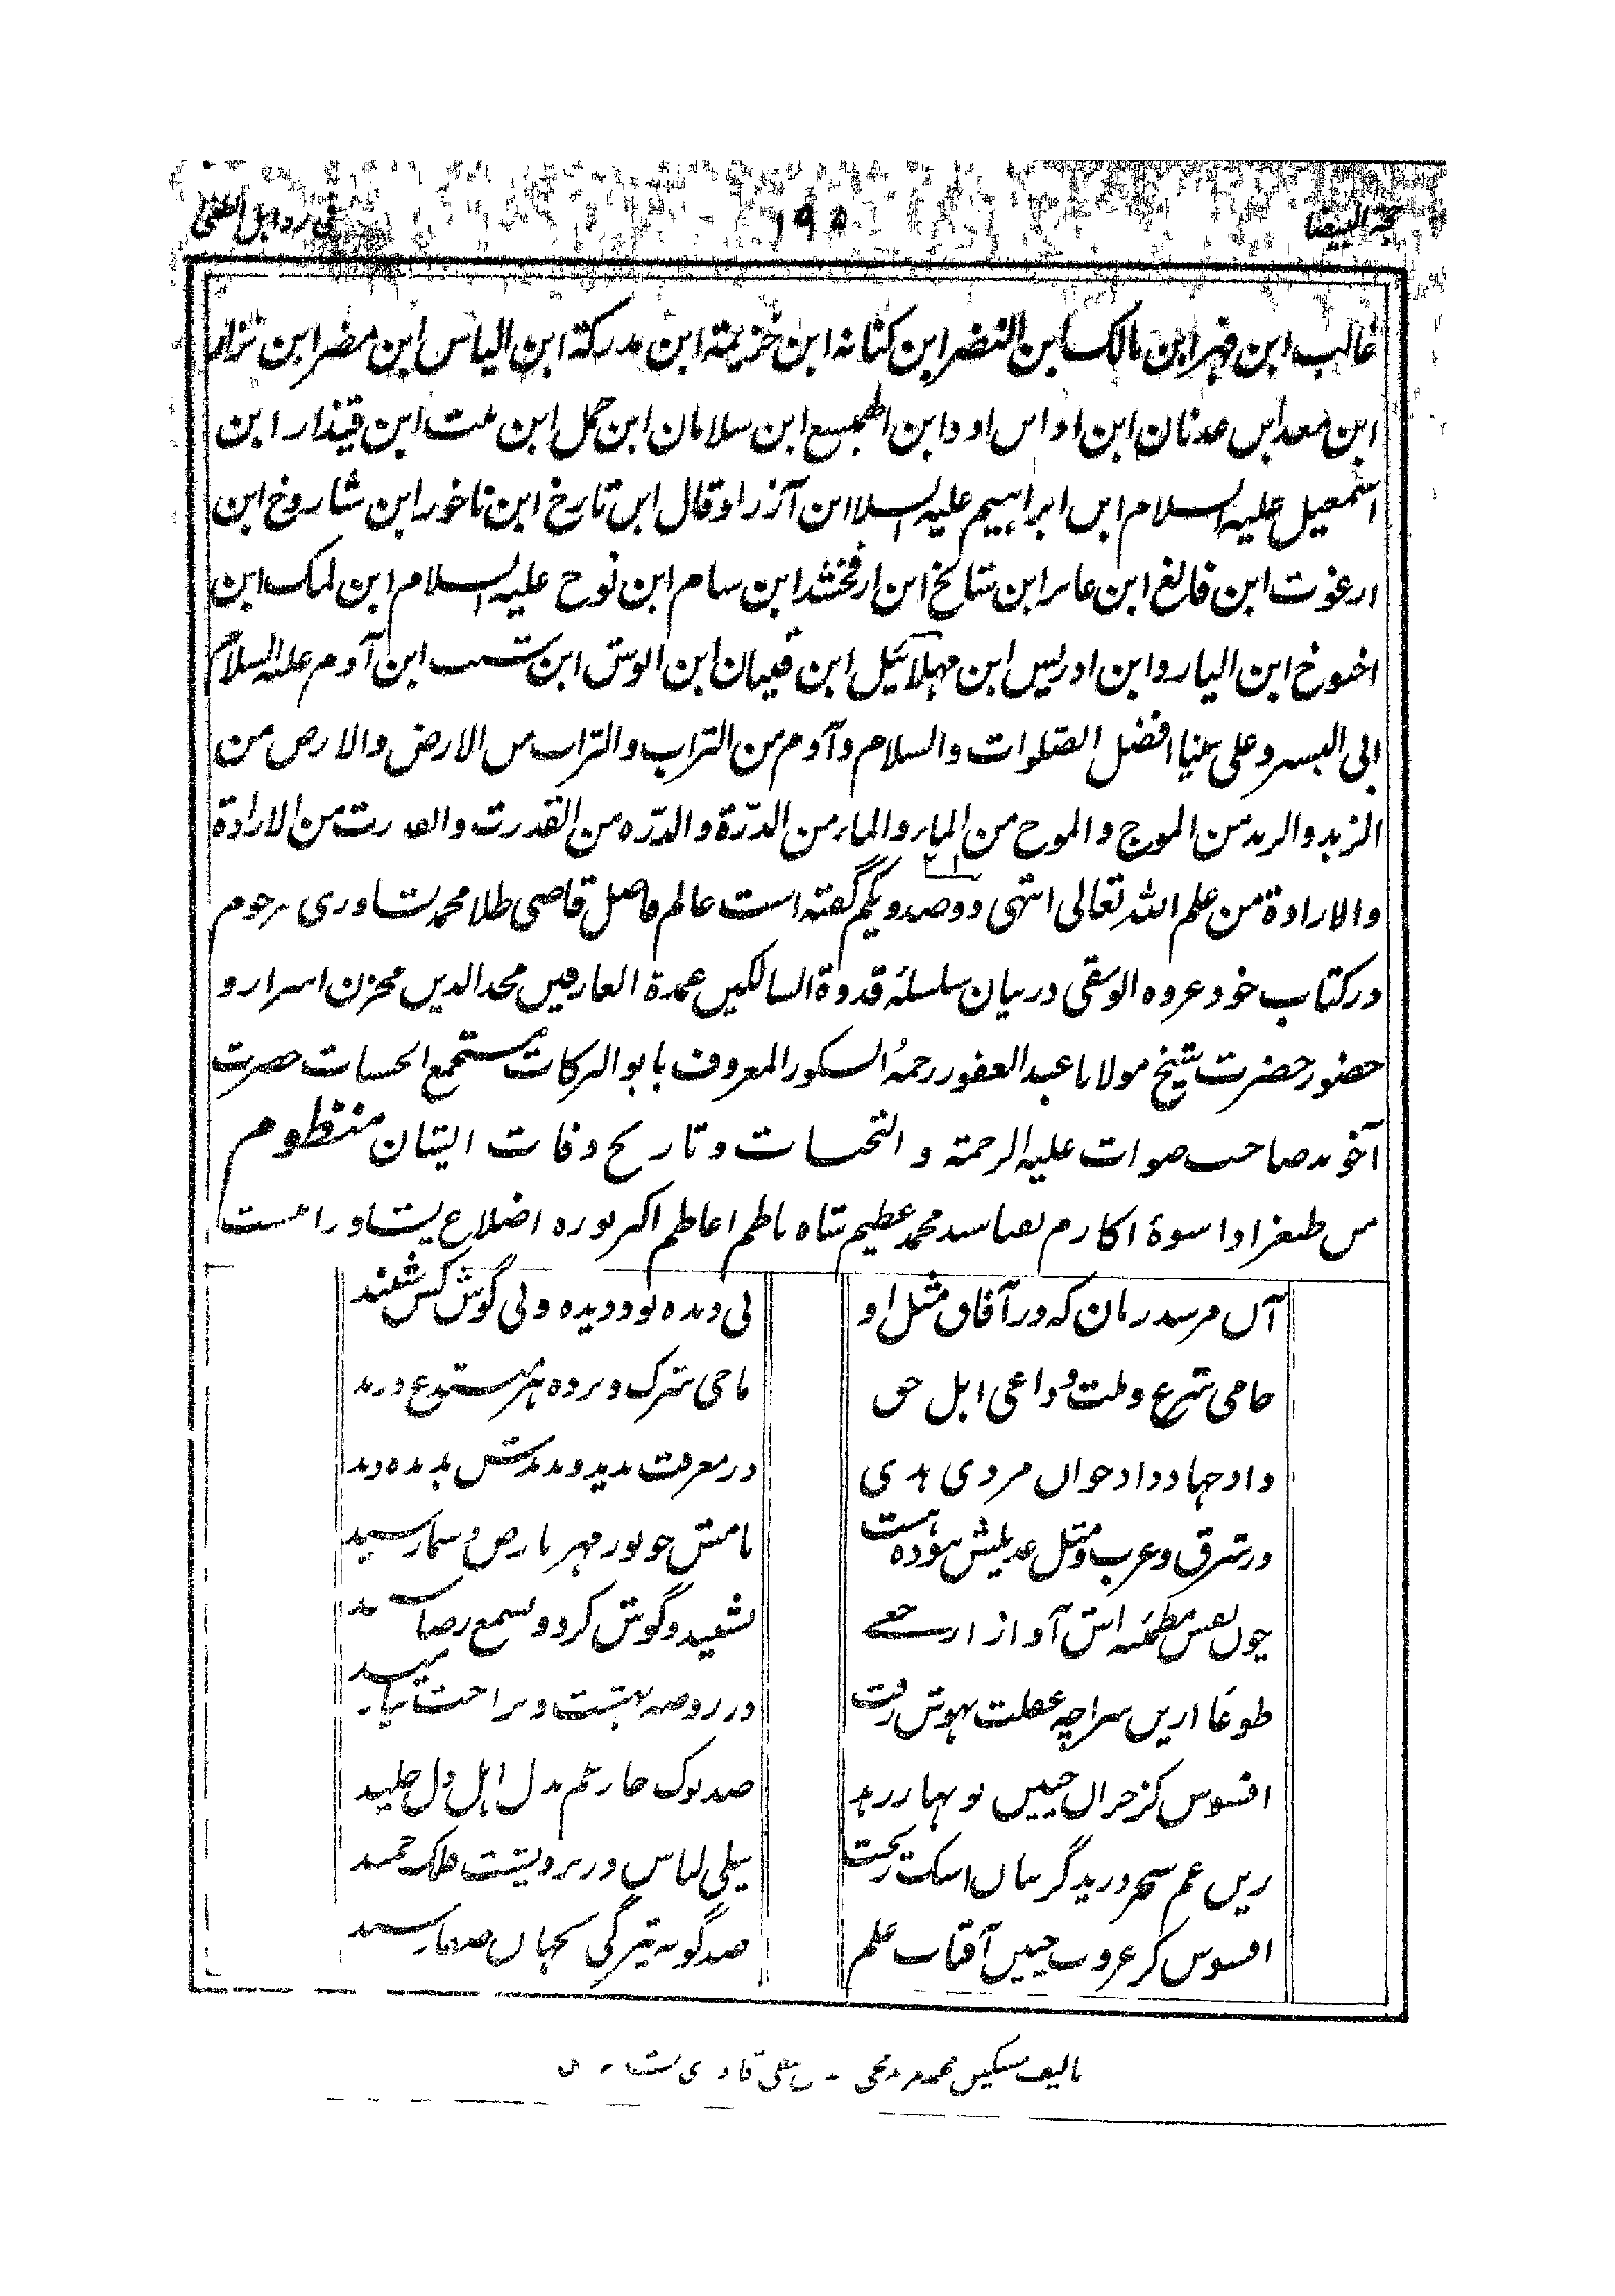 حجة البیضا ۱۹۵ فی رد اہل الطغی
غالب ابن فہر ابن مالک ابن النضر ابن کنانہ ابن خزیمۃ ابن مدرکۃ ابن الیاس ابن مضر ابن نزار
ابن معد ابن عدنان ابن او اس اود ابن الھمیسع ابن سلامان ابن حمل ابن نبت ابن قیذار ابن
اسمعیل علیہ السلام ابن ابراہیم علیہ السلا ابن آزر او قال ابن تارخ ابن ناخور ابن شاروخ ابن
ارغوت ابن فالغ ابن عابر ابن شالخ ابن ارفخشد ابن سام ابن نوح علیہ السلام ابن لمک ابن
اخنوخ ابن الیارو ابن ادریس ابن مہلائیل ابن قینان ابن انوش ابن شیث ابن آدم علیہ السلام
ابی البشر وعلی نبینا افضل الصلوات والسلام وآدم من التراب والتراب من الارض والارض من
الزبد والزبد من الموج والموج من الماء والماء من الدرّۃ والدرّہ من القدرت والقدرت من الارادۃ
والارادۃ من علم اللہ تعالی انتہی دوصد ویکم گفتہ است عالم فاضل قاضی طلا محمد پشاوری مرحوم
۲۰۱
در کتاب خود عروہ الوثقی دربیان سلسلۂ قدوۃ السالکین عمدۃ العارفین مجد الدین مخزن اسرار و
حضور حضرت شیخ مولانا عبد الغفور رحمہُ الشکور المعروف بابو البرکات مستجمع الحسنات حضرت
آخوند صاحب صوات علیہ الرحمۃ و التحیات و تاریخ وفات ایشان منظوم
من طبعزاد اسوۂ اکارم سید محمد عظیم شاہ ناظم اعاظم اکبر پورہ اضلاع پشاور است
آن مرشد زمان کہ در آفاق مثل او نی دیدہ بود دیدہ و نی گوش کس شنید
حامی شرع و ملت و داعی اہل حق ماحی شرک و پردہ ہر مبتدع درید
داد جہاد داد جوان مردی ہدی در معرفت پدید
در شرق و غرب و مثل عدیلش نبودہ است نامش چو نور مہر بارض و سما رسید
چون نفس مطمئنہ اش آواز ارجعی بشنید و گوش کرد و بسمع رضا
طوعًا ازین سراچہ غفلت بہوش رفت در روضہ بہشت و براحت بیارمید
افسوس کز خزان چنین نوبہار زہد صد نوک خار غم بدل اہل دل خلید
زین غم سحر درید گریبان اشک ریخت نیلی لباس در بر و پشت فلک خمید
افسوس کز غروب چنین آفتاب علم صد گونہ تیرگی بجہان صفا رسید
تالیف مسکین محمد